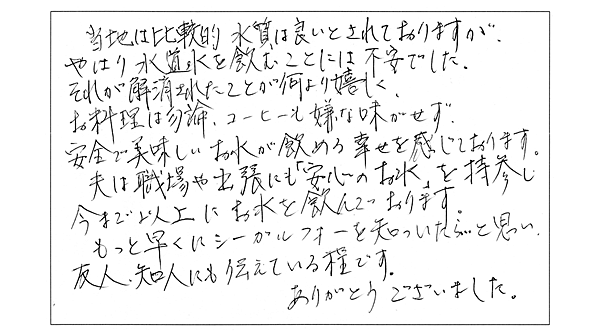 当地は比較的 水質は良いとされておりますが、
やはり水道水を飲むことには不安でした。
それが解消されたことが何より嬉しく、
お料理は勿論、コーヒーも嫌な味がせず、
安全で美味しいお水が飲める幸せを感じております。
夫は職場や出張にも「安心のお水」を持参し
今まで以上にお水を飲んでおります。
もっと早くにシーガルフォーを知っていたらと思い、
友人、知人にも伝えている程です。
ありがとうございました。